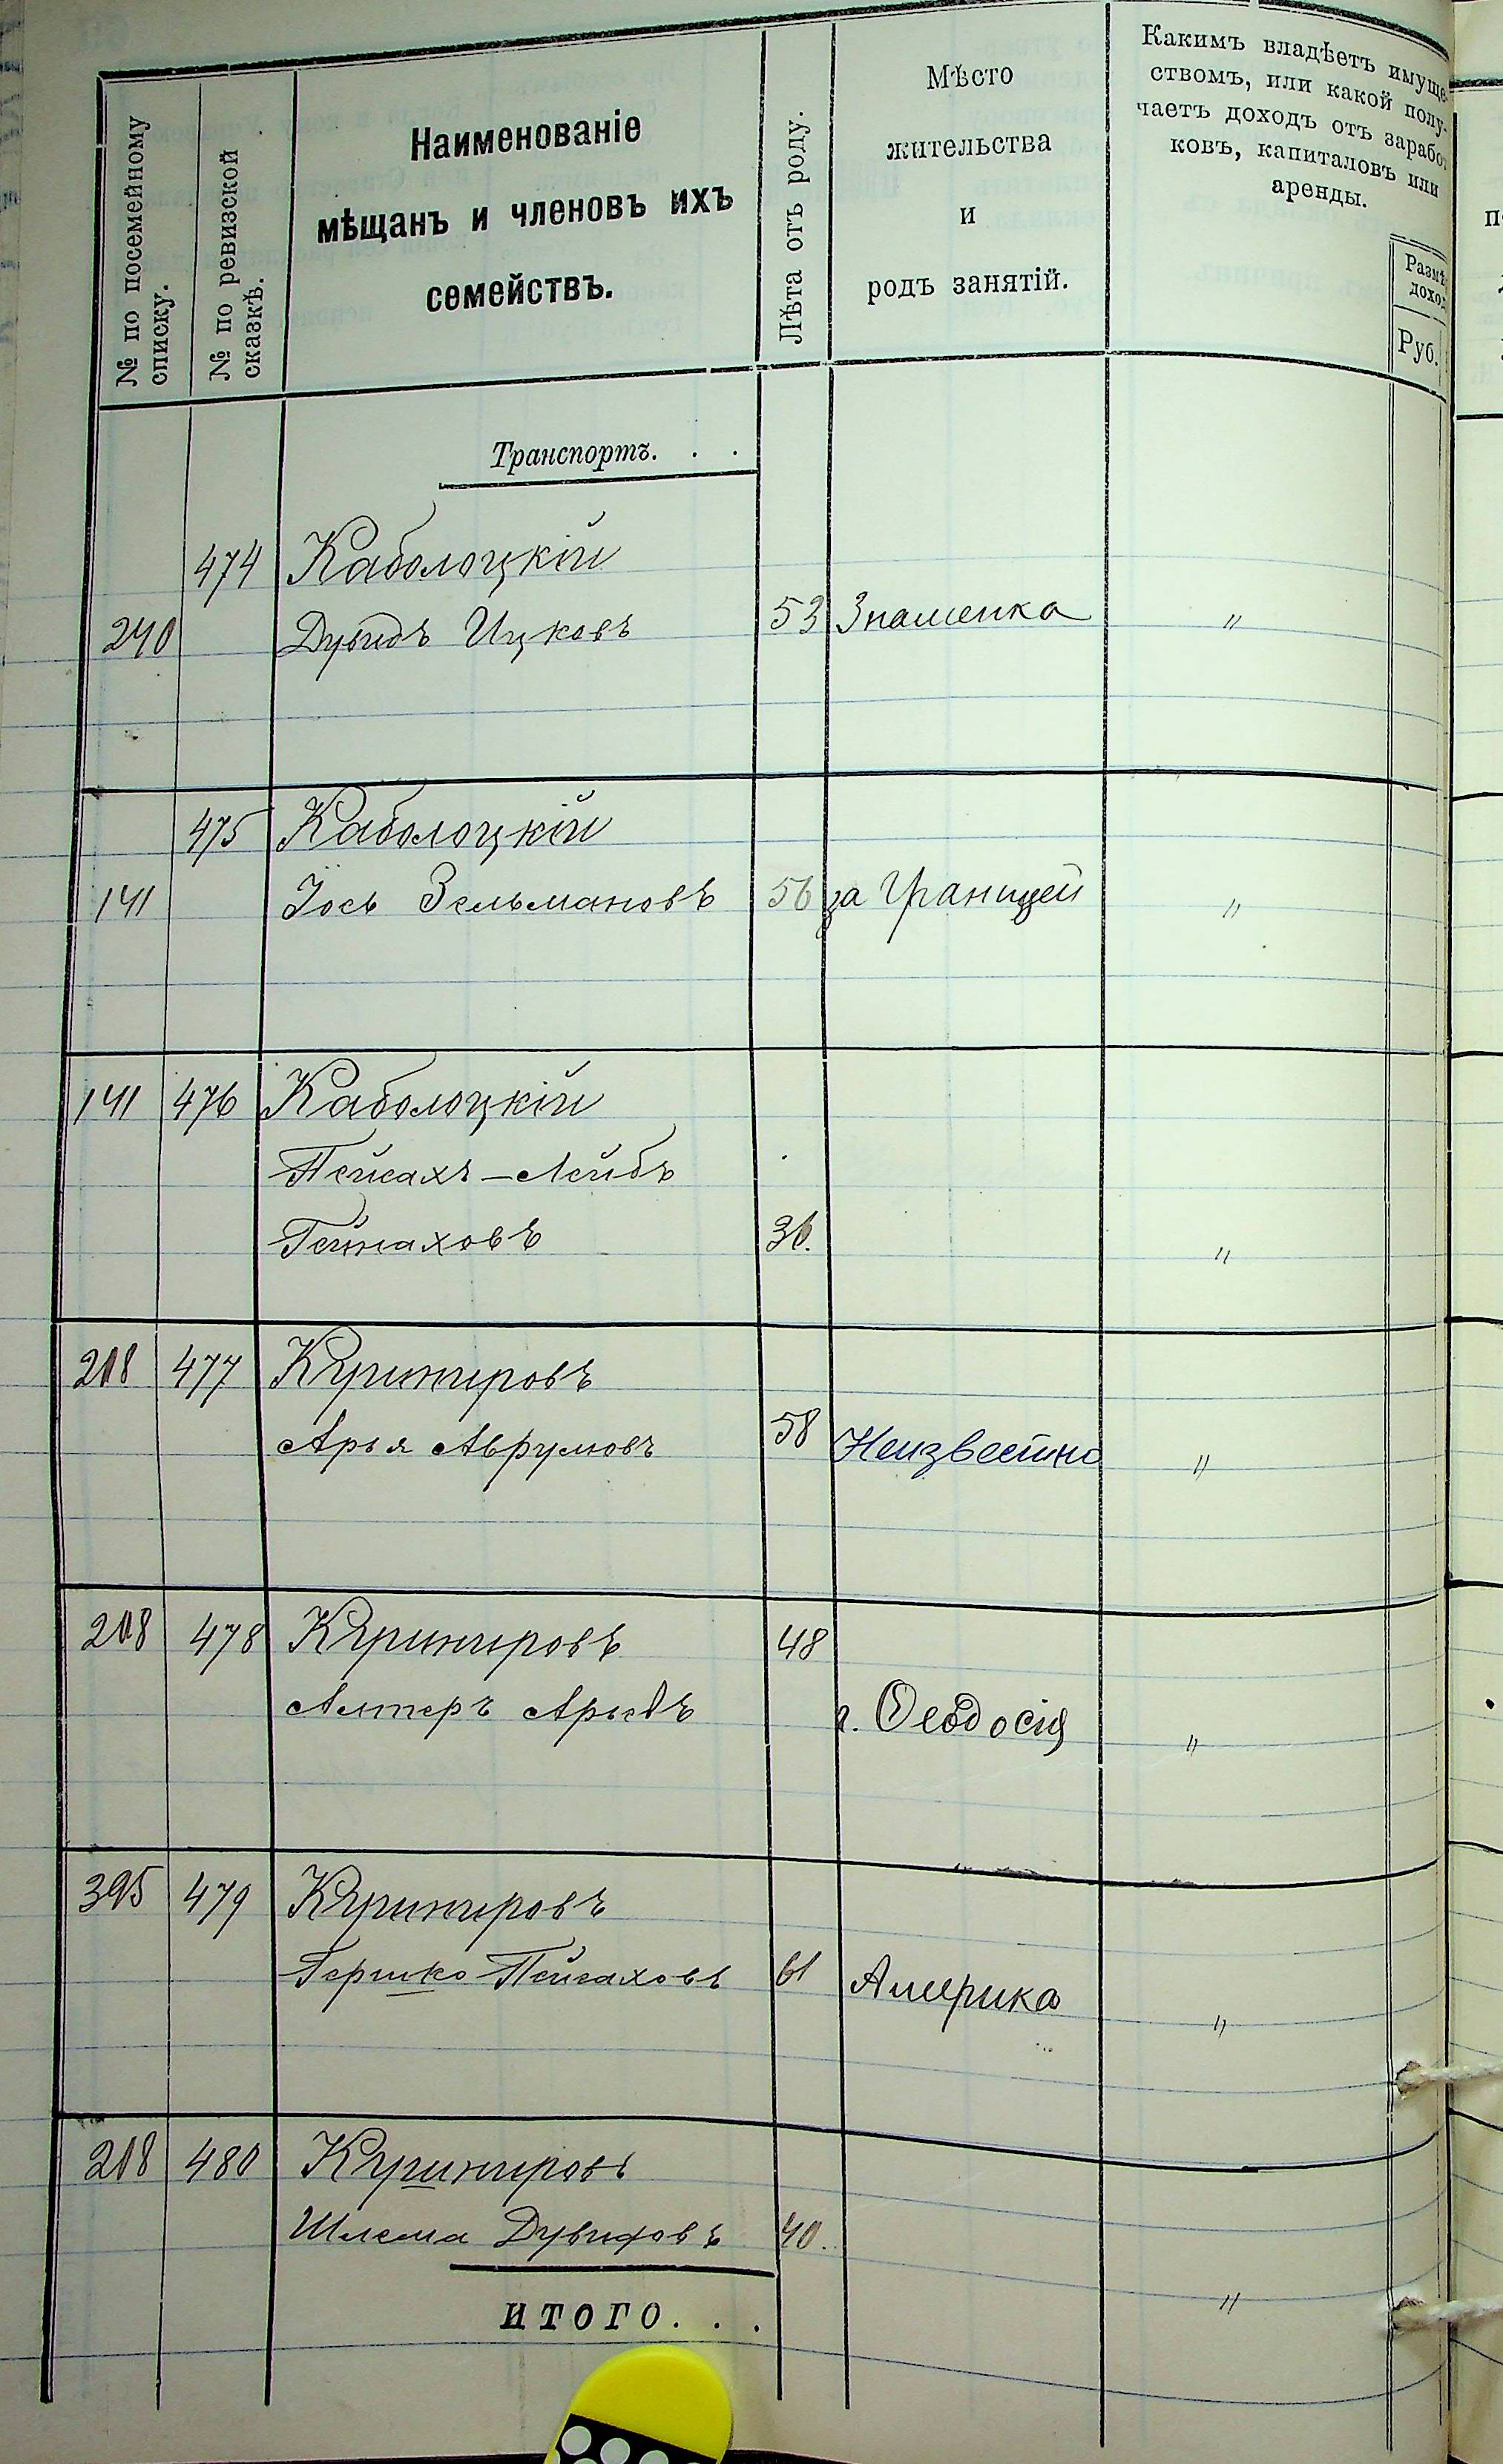 № по посемейному
списку.
№ по ревизской
сказкѣ.
Наименованіе
мѣщанъ и членовъ ихъ
семействъ.
Лѣта отъ роду.
Мѣсто
жительства
и
родъ занятій.
Какимъ владѣетъ имуще-
ствомъ, или какой полу-
чаетъ доходъ отъ зарабо
ковъ, капиталовъ или
аренды.
Размѣ
доход
Руб.
Транспортъ. . .
474 Каболоцкій
240 Дувидъ Ицковъ 53 Знаменка "
475 Каболоцкій
141 Іось Зельмановъ 56 за Границей "
141 476 Каболоцкій
Пейсахъ-Лейбъ
Гейнаховъ 36. "
218 477 Кушнировъ
Арья Аврумовъ 58 Неизвестно "
218 478 Кушнировъ 48
Алтеръ Арьевъ г. Ѳеодосія "
395 479 Кушнировъ
Гершко Пейсаховъ 61 Америка "
218 480 Кушнировъ
Шлема Дувидовъ 40.
"
ИТОГО. . .